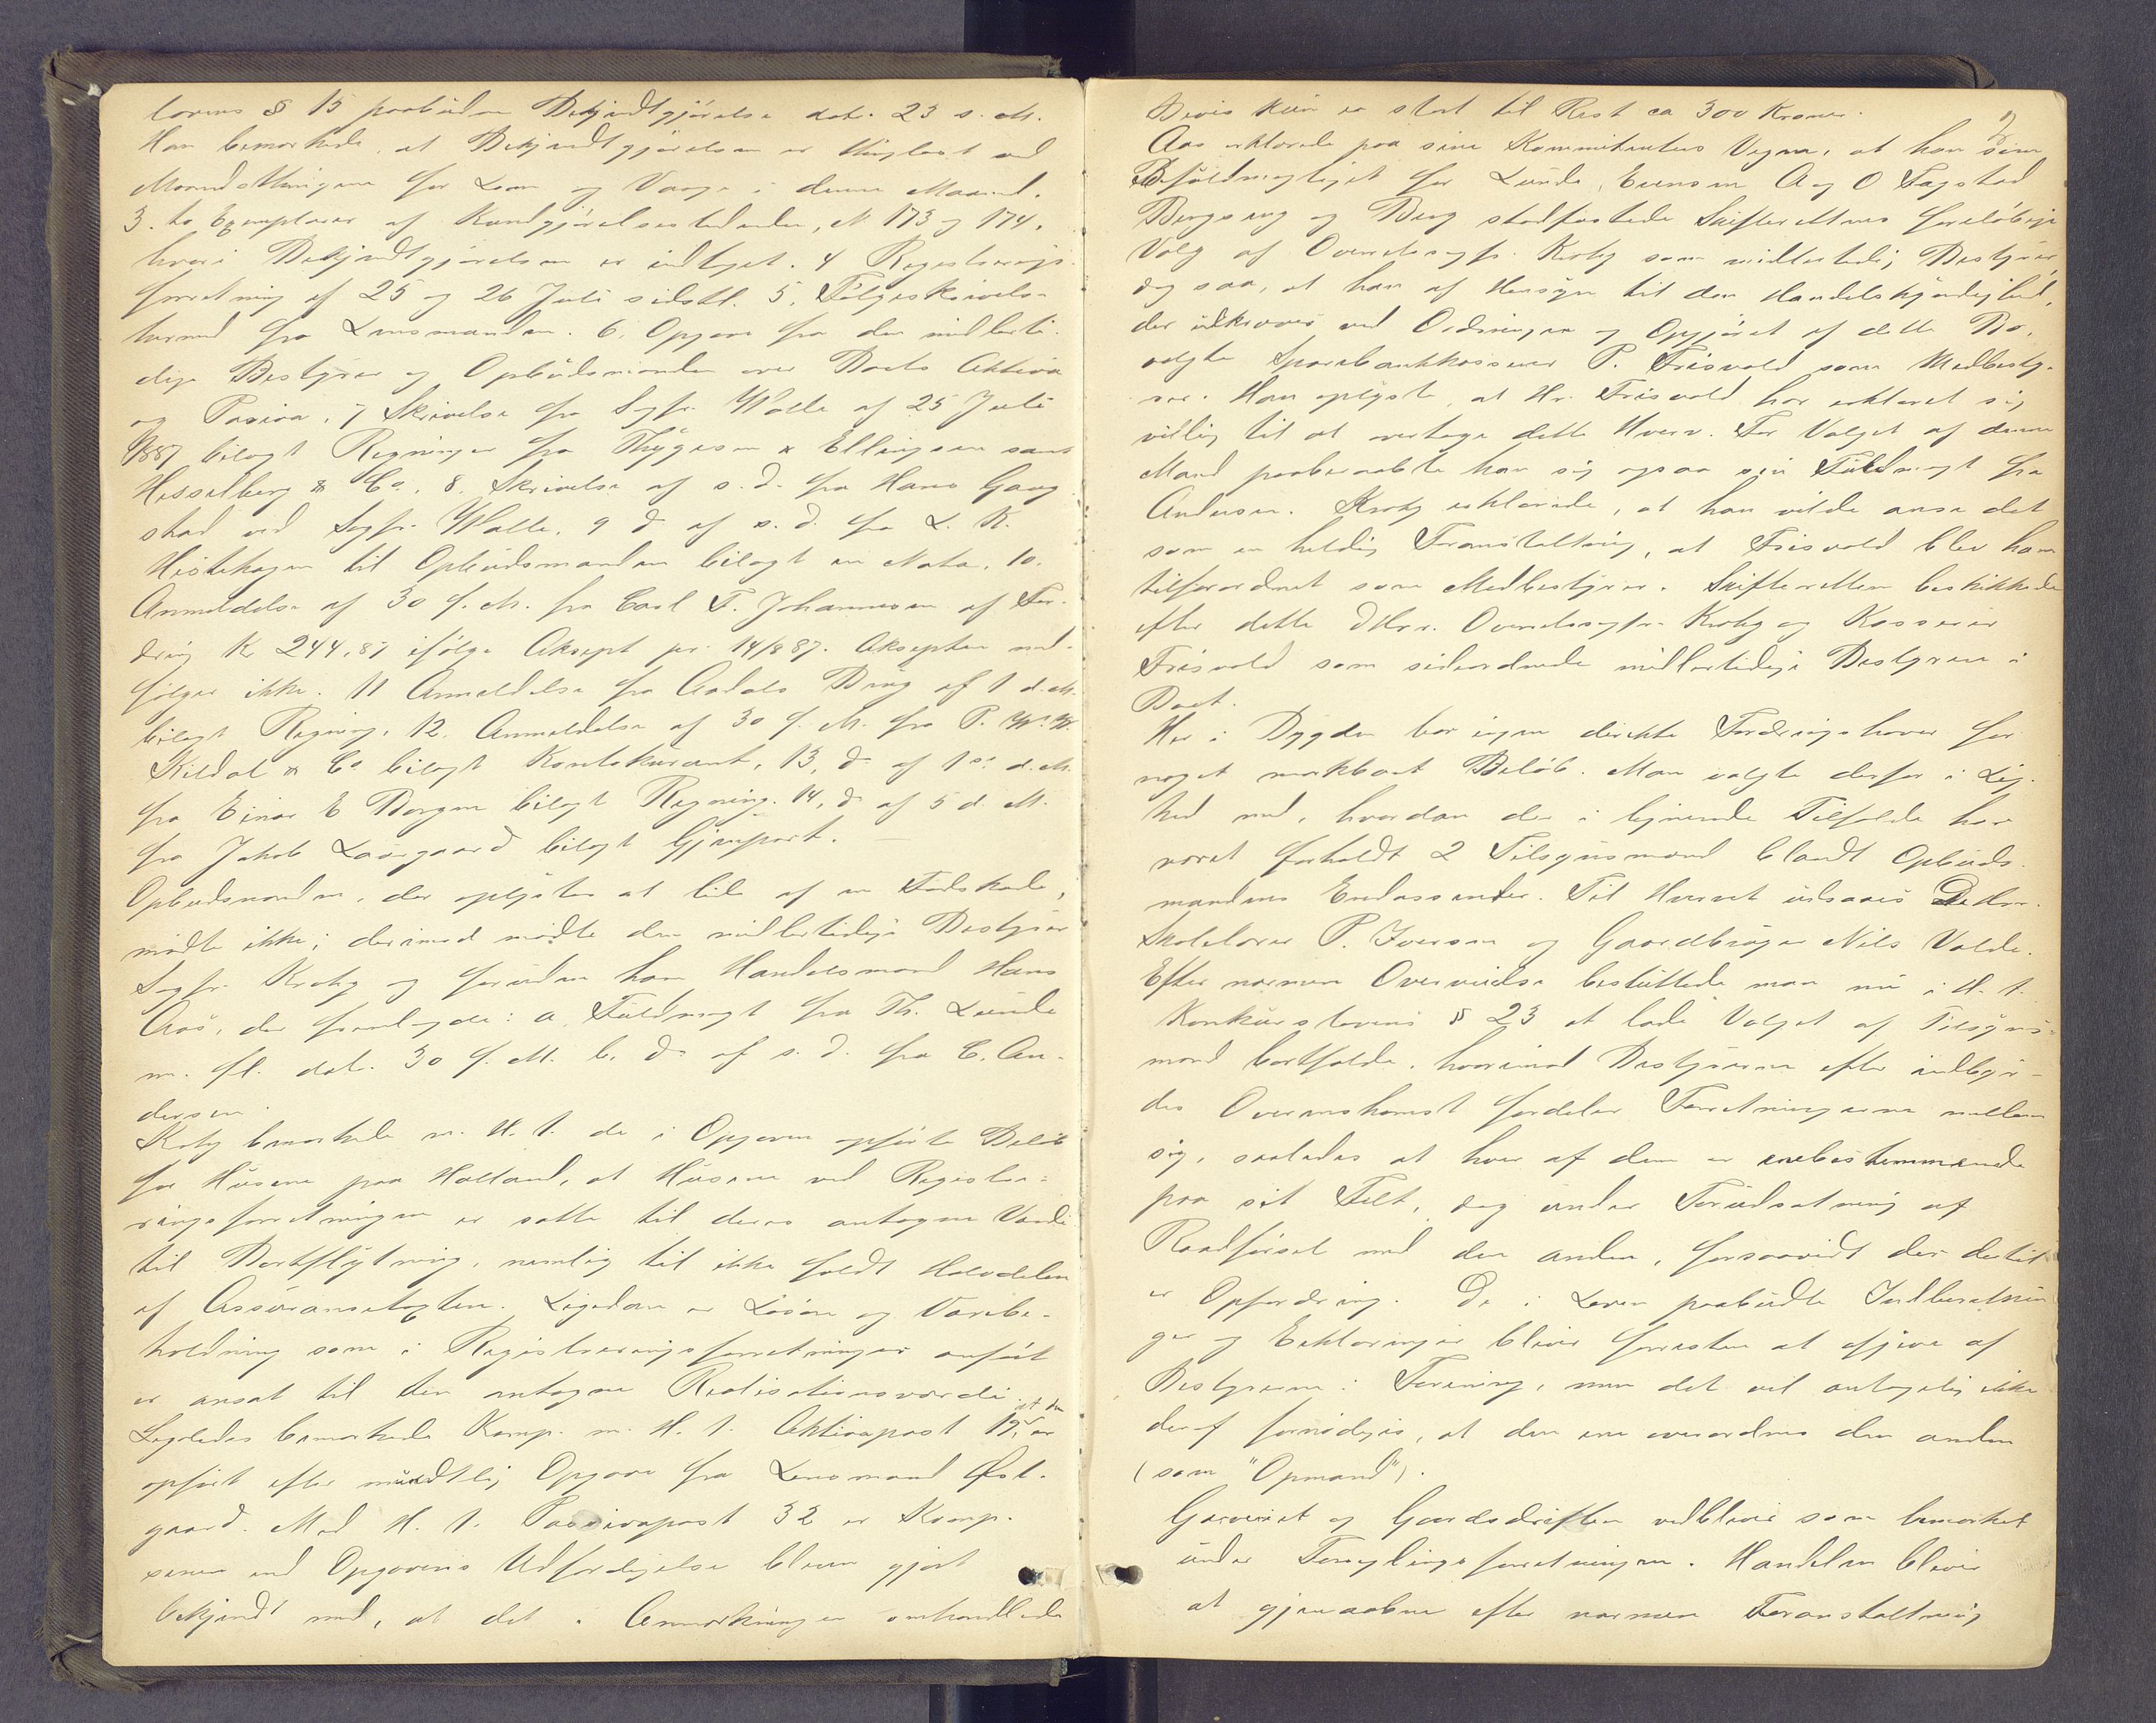 lovens § 15 paabudne Bekjendtgjørelse dat. 23 s. M.
Han bemærkede, at Bekjendtgjørelsen er thinglæst ved
Maanedsthingene for Lom og Vaage i denne Maaned.
3. to Exemplarer af Kundgjørelsestidende, N. 173 og 174,
hvori Bekjendtgjørelsen er indtaget. 4 Registrerings-
forretning af 25 og 26 Juli sidstl. 5. Følgeskrivelse
hermed fra Lensmanden. 6. Opgave fra den midlerti-
dige Bestyrer og Opbudsmanden over Boets Aktiva
og Passiva. 7 Skrivelse fra Sagfr. Wolle af 25 Juli
1887 bilagt Regninger fra Thygesen & Ellingsen samt
Hesselberg & Co. 8. Skrivelse af s. d. fra Hans Gaug
stad ved Sagfr. Wolle. 9 do af s. d. fra L. K.
til Opbudsmanden bilagt en Nota. 10.
Anmeldelse af 30 f. M. fra Carl F. Johannesen af For-
dring Kr 244,87 ifølge Aksept pr. 14/8 87. Aksepten med-
følger ikke. 11 Anmeldelse fra Aadals Brug af 1 d. M.
bilagt Regning. 12. Anmeldelse af 30 f. M. fra P. W. W.
Kildal & Co bilagt Kontokurant. 13, do af 1ste d. M.
fra Einar E Borgen bilagt Regning. 14, do af 5 d. M.
fra Jakob Laurgaard bilagt Gjenpart. —
Opbudsmanden, der oplystes at lide af en Fodskade,
mødte ikke; derimod mødte den midlertidige Bestyrer
Sagfr. Krohg og foruden ham Handelsmand Hans
Aas, der fremlagde: a, Fuldmagt fra Th. Lunde
m. fl. dat. 30 f. M. b. do af s. d. fra C. An-
dersen.
Krohg bemærkede m. H. t. de i Opgaven opførte Beløb
for Husene paa Holland, at Husene ved Registre-
ringsforretningen er satte til deres antagne Værdi
til Bortflytning, nemlig til ikke fuldt Halvdelen
af Assurancetaxten. Ligedan er Løsøre og Varebe-
holdning som i Registreringsforretningen anført
er ansat til den antagne Realisationsværdi
Ligeledes bemærkede Komp. m. H. t. Aktivapost 19, at den er
opført efter mundtlig Opgave fra Lensmand Øst-
gaard. Med H. t. Passivapost 32 er Komp.
senere end Opgavens Udfærdigelse bleven gjort
bekjendt med, at det i Anmærkningen omhandlede
Bevis kun er stort til Rest ca 300 Kroner.
Aas erklærede paa sine Kommittenters Vegne, at han som
Befuldmægtiget for Lunde, Evensen A og O Fagstad
Bergseng og Berg stadfæstede Skifterettens foreløbige
Valg af Overretssagfr. Krohg som midlertidig Bestyrer,
dog saa, at han af Hensyn til den Handelskyndighed,
der udkræves ved Ordningen og Opgjøret af dette Bo,
valgte Sparebankkasserer P. Frisvold som Medbesty-
rer. Han oplyste, at Hr. Frisvold har erklæret sig
villig til at overtage dette Hverv. For Valget af denne
Mand paaberaabte han sig ogsaa sin Fuldmagt fra
Andersen. Krohg erklærede, at han vilde anse det
som en heldig Foranstaltning, at Frisvold blev ham
tilforordnet som Medbestyrer. Skifteretten beskikkede
efter dette D'Hrr. Overretssagfr. Krohg og Kasserer
Frisvold som sideordnede midlertidige Bestyrere i
Boet.
Her i Bygden bor ingen direkte Fordringshaver for
noget merkbart Beløb. Man valgte derfor i Lig-
hed med, hvordan der i lignende Tilfælde har
været forholdt 2 Tilsynsmænd blandt Opbuds-
mandens Endossenter. Til Hvervet udsaaes
Skolelærer P. Iversen og Gaardbruger Nils Valde.
Efter nærmere Overveielse besluttede man nu i H. t.
Konkurslovens § 23 at lade Valget af Tilsyns-
mænd bortfalde, hvorimod Bestyrerne efter indbyr-
des Overenskomst fordeler Forretningerne mellem
sig, saaledes at hver af dem er enebestemmende
paa sit Felt, dog under Forudsætning af
Raadførsel med den anden, forsaavidt der dertil
er Opfordring. De i Loven paabudte Indberetnin
ger og Erklæringer bliver forresten at afgive af
Bestyrerne i Forening, men det vil antagelig ikke
deraf fornødiges, at den ene overordnes den anden
(som "Opmand").
Garveriet og Gaardsdriften vedbliver som bemærket
under Forseglingsforretningen. Handelen bliver
at gjenaabne efter nærmere Foranstaltning